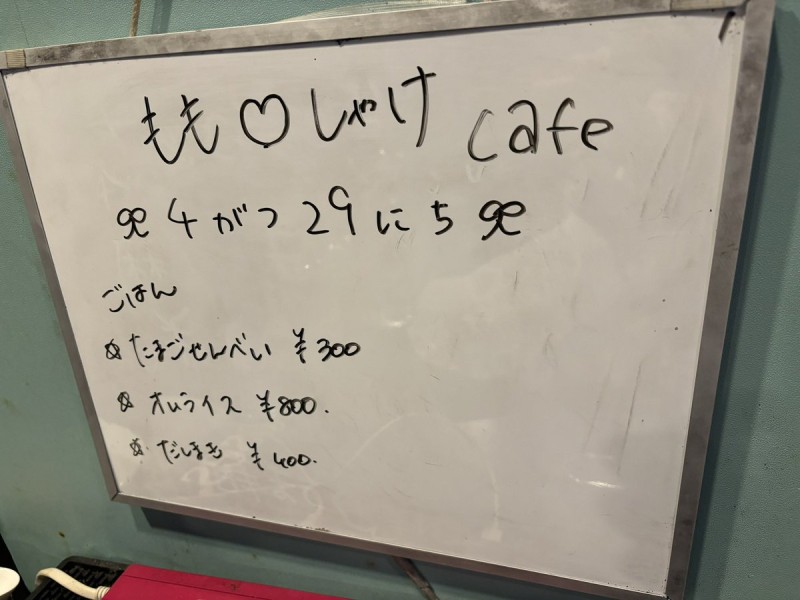 もも♡しゃけ cafe
4がつ29にち
ごはん
☆たまごせんべい ¥300
☆オムライス ¥800.
☆だしまき ¥400.